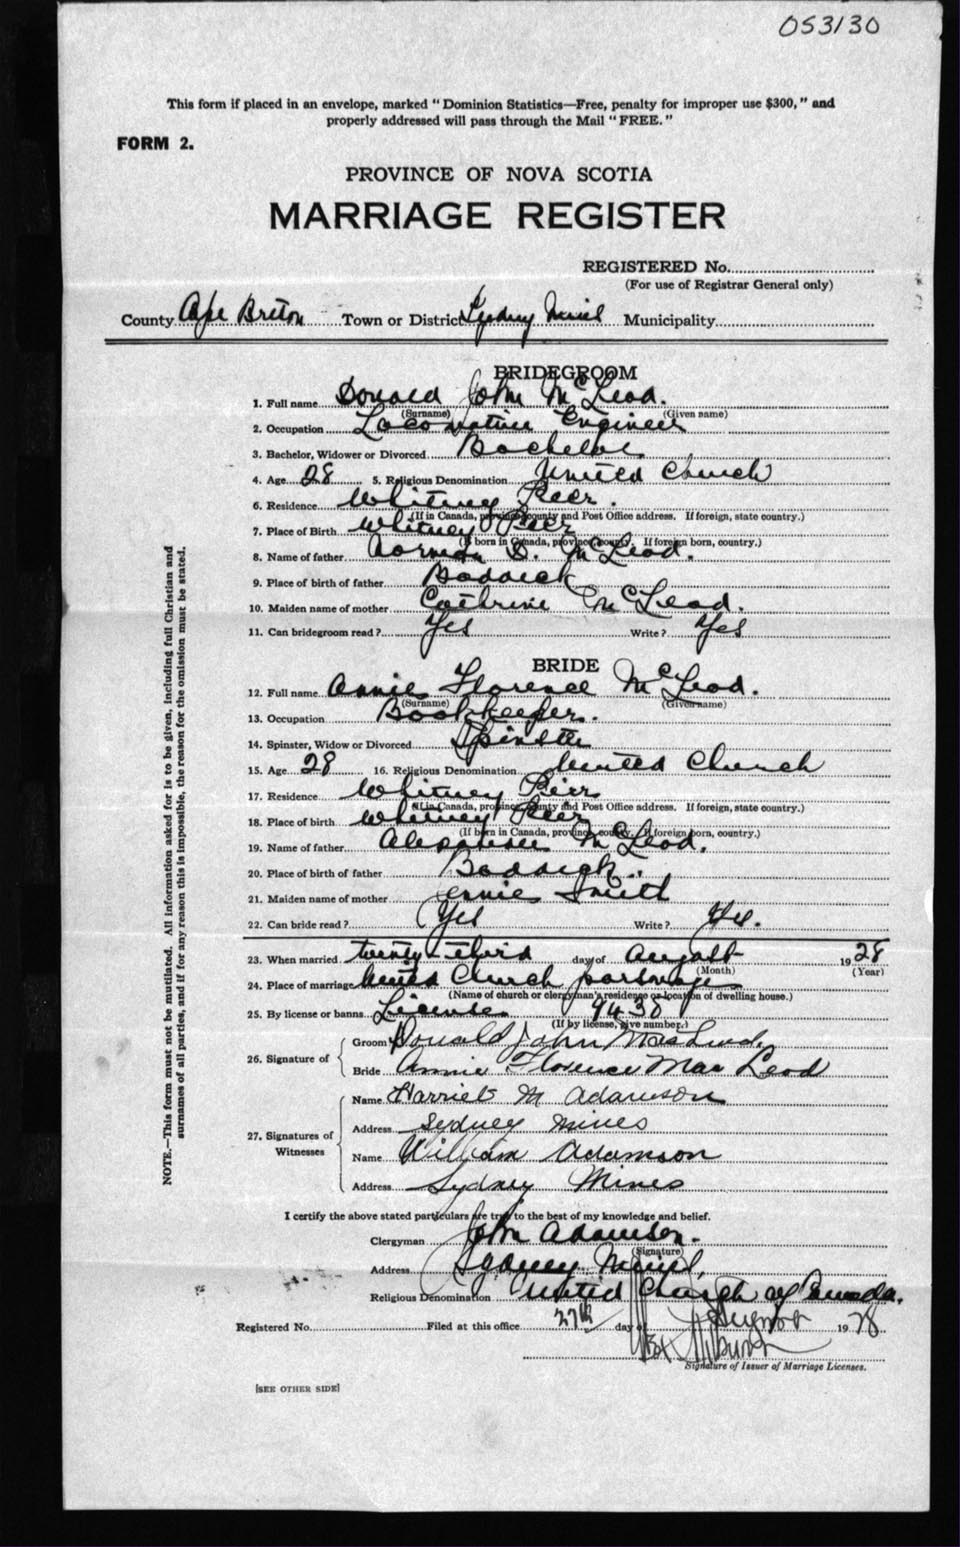 053130
This form if placed in an envelope, marked "Dominion Statistics—Free, penalty for improper use $300," and
properly addressed will pass through the Mail "FREE."
FORM 2.
PROVINCE OF NOVA SCOTIA
MARRIAGE REGISTER
REGISTERED No.
(For use of Registrar General only)
County Cape Breton Town or District Sydney Mines Municipality
BRIDEGROOM
1. Full name Donald John McLeod.
(Surname) (Given name)
2. Occupation Locomotive Engineer
3. Bachelor, Widower or Divorced Bachelor
4. Age 28 5. Religious Denomination United Church
6. Residence Whitney Pier.
(If in Canada, province, county and Post Office address. If foreign, state country.)
7. Place of Birth Whitney Pier
(If born in Canada, province, county. If foreign born, country.)
8. Name of father Norman D. McLeod.
9. Place of birth of father Baddeck
10. Maiden name of mother Cathrine McLeod.
11. Can bridegroom read? Yes Write? Yes
BRIDE
12. Full name Annie Florence McLeod.
(Surname) (Given name)
13. Occupation Bookkeeper.
14. Spinster, Widow or Divorced Spinster
15. Age 28 16. Religious Denomination United Church
17. Residence Whitney Pier
(If in Canada, province, county and Post Office address. If foreign, state country.)
18. Place of birth Whitney Pier
(If born in Canada, province, county. If foreign born, country.)
19. Name of father Alexander McLeod.
20. Place of birth of father Baddeck.
21. Maiden name of mother Jennie Smith
22. Can bride read? Yes Write? Yes.
23. When married twenty-third day of August 1928
(Month) (Year)
24. Place of marriage United Church parsonage
(Name of church or clergyman's residence or location of dwelling house.)
25. By license or banns License 9430
(If by license, give number.)
26. Signature of
Groom Donald John MacLeod.
Bride Annie Florence MacLeod
27. Signatures of Witnesses
Name Harriet M Adamson
Address Sydney Mines
Name William Adamson
Address Sydney Mines
I certify the above stated particulars are true to the best of my knowledge and belief.
Clergyman John Adamson.
(Signature)
Address Sydney Mines,
Religious Denomination United Church of Canada.
Registered No. Filed at this office 27th day of August 1928
Signature of Issuer of Marriage Licenses.
[SEE OTHER SIDE]
NOTE.—This form must not be mutilated. All information asked for is to be given, including full Christian and
surnames of all parties, and if for any reason this is impossible, the reason for the omission must be stated.